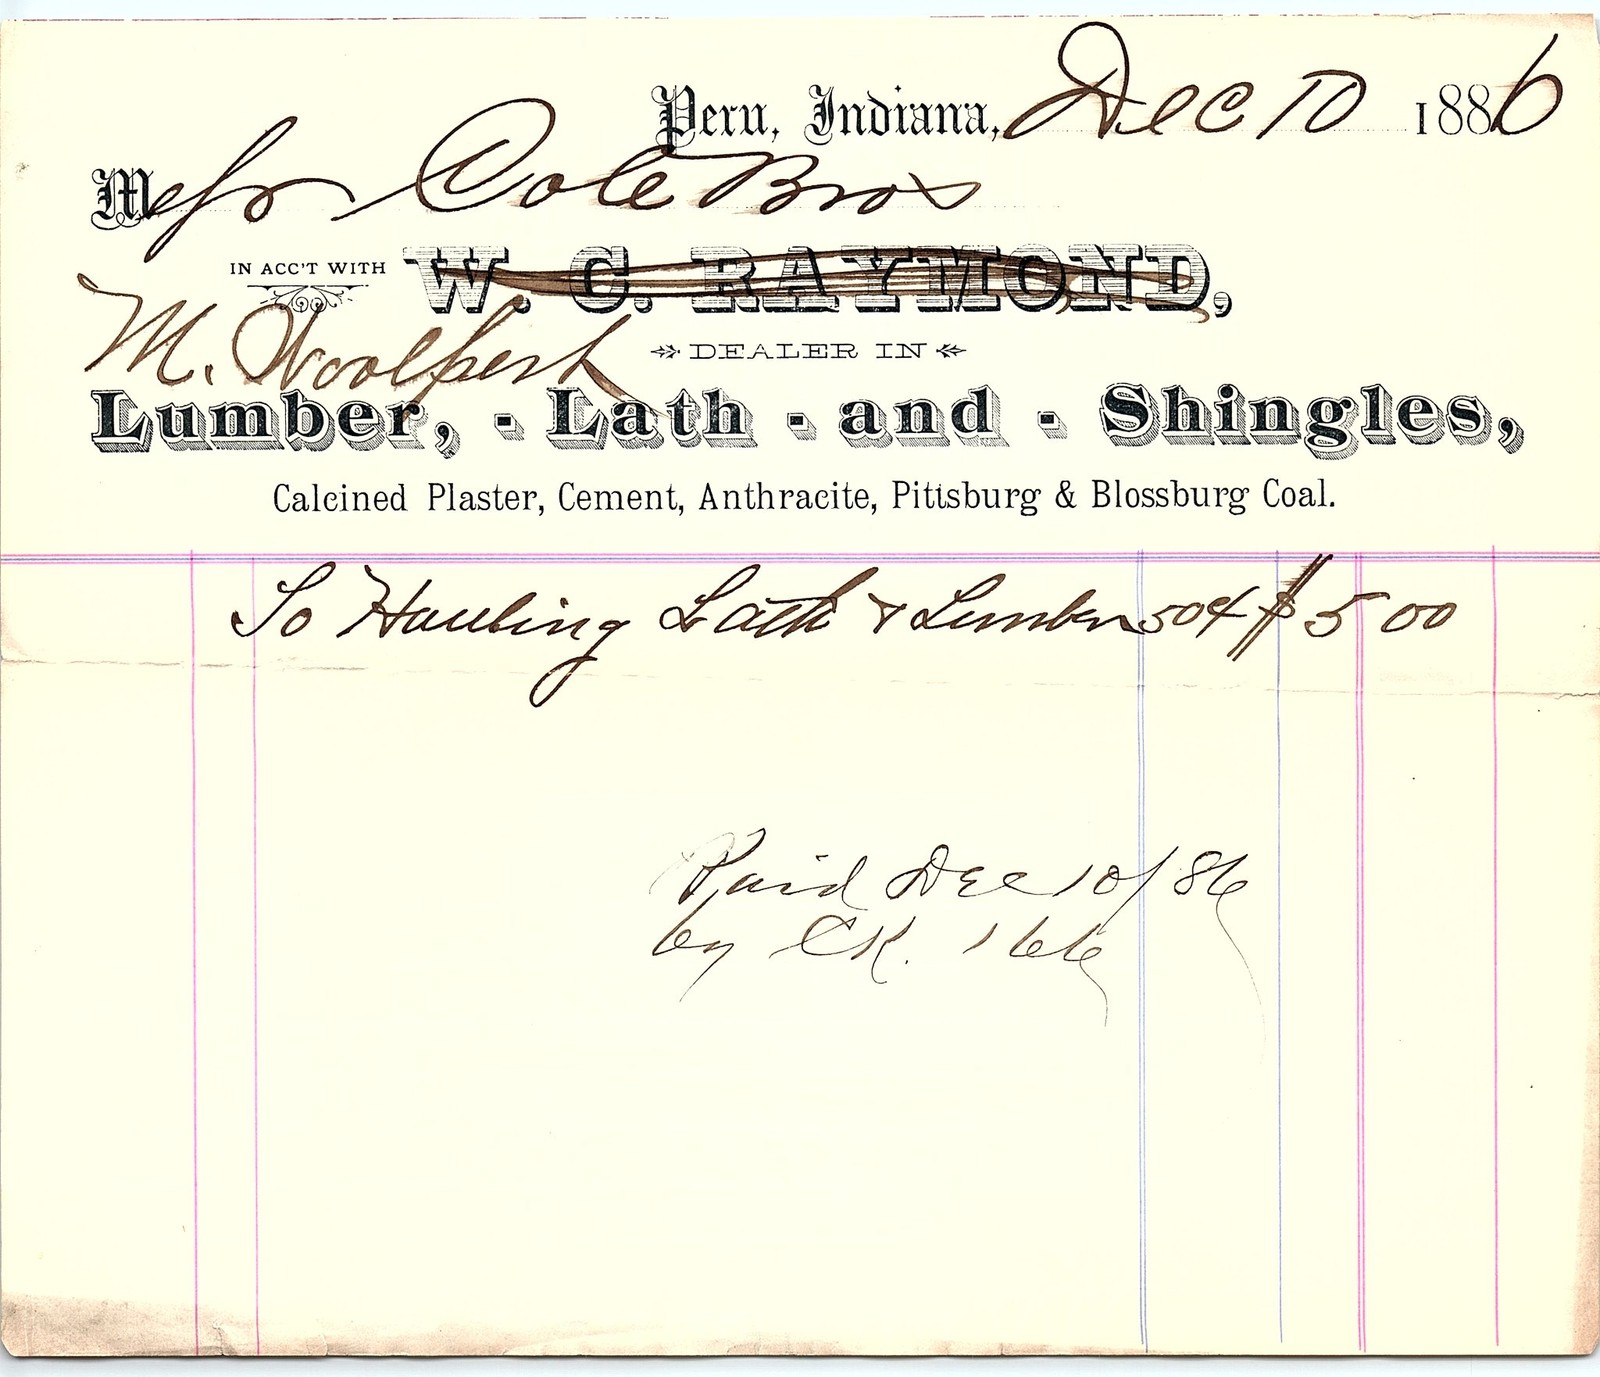 Peru, Indiana, Dec 10 1886
Messrs Cole Bros
IN ACC'T WITH W. C. RAYMOND,
M. Woolpert
DEALER IN
Lumber, - Lath - and - Shingles,
Calcined Plaster, Cement, Anthracite, Pittsburg & Blossburg Coal.
To Hauling Lath & Lumber $5 00
Paid Dec 10/86
by CK. 166